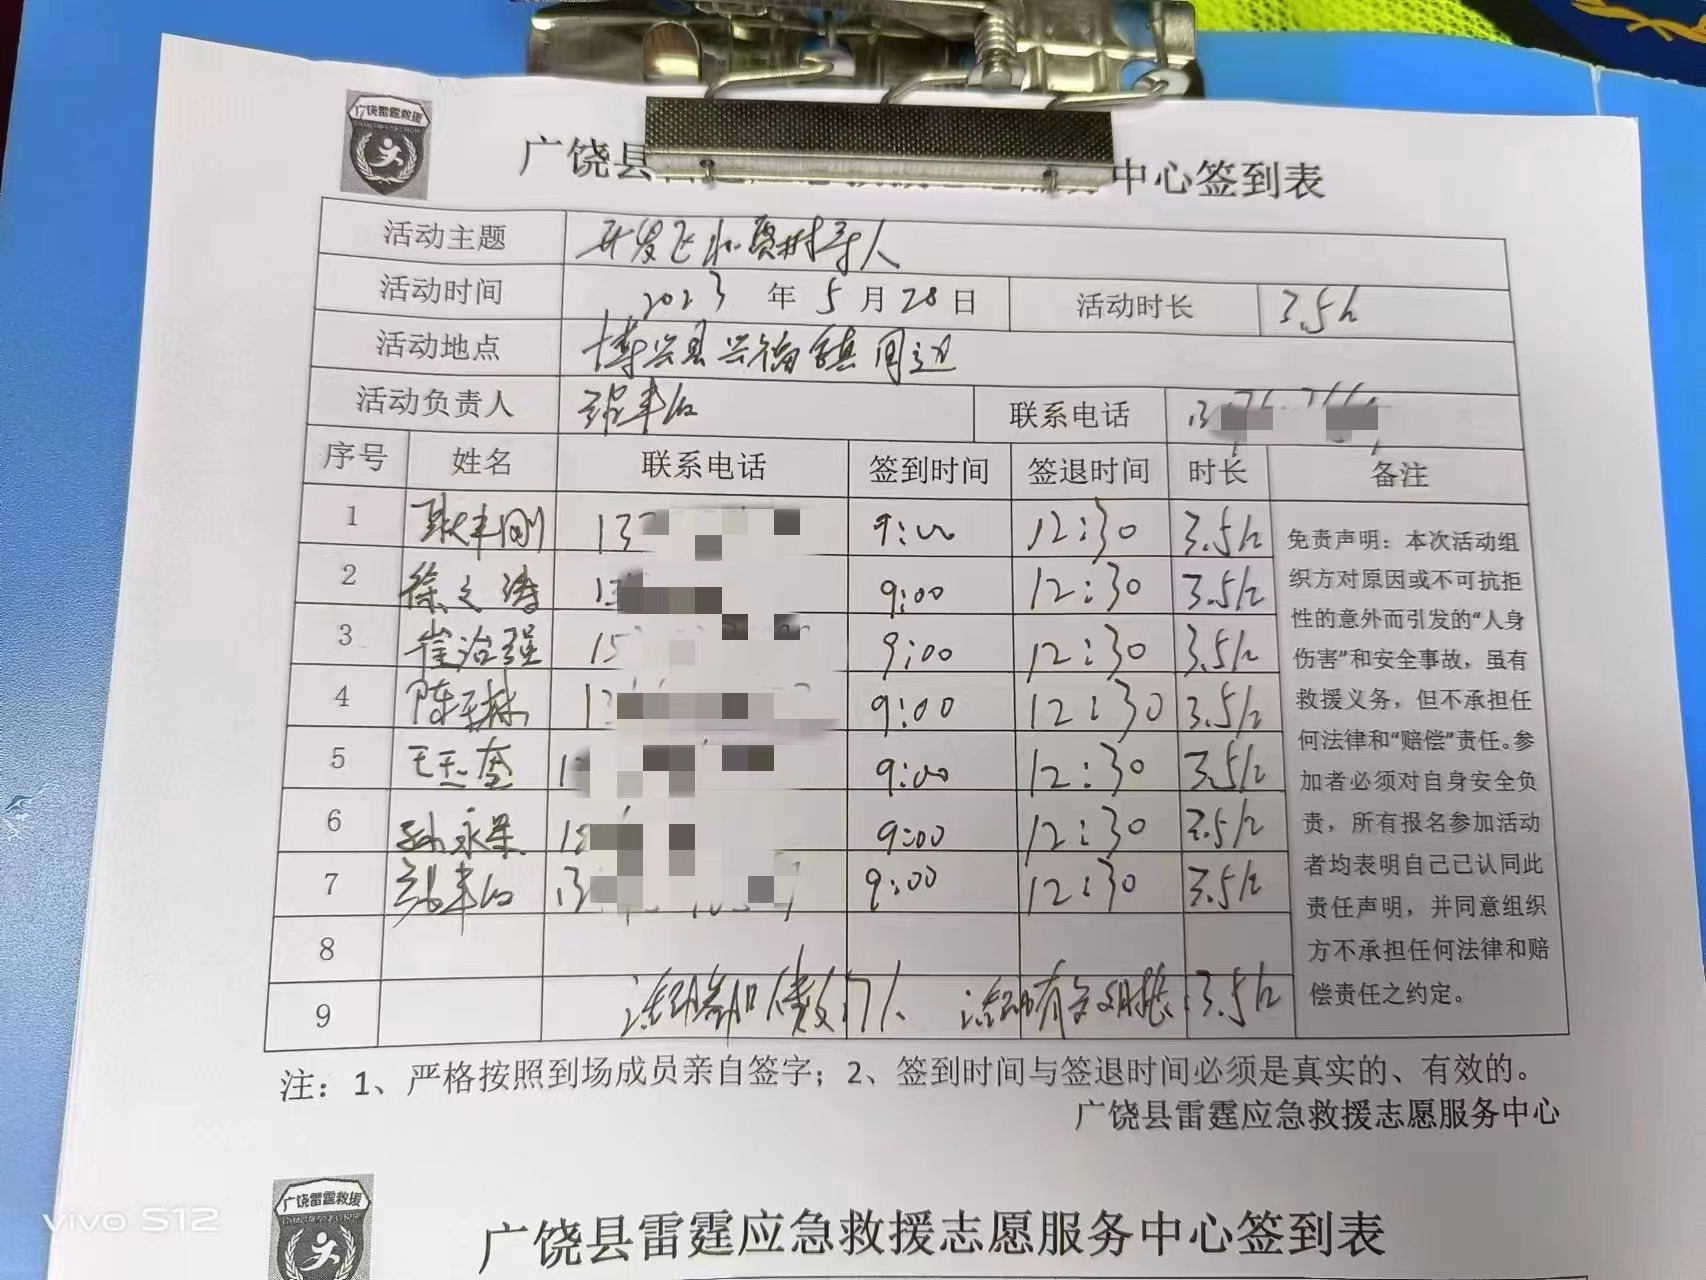 广饶雷霆救援
广饶县 中心签到表
活动主题
活动时间 2023 年 5 月 28 日 活动时长 3.5h
活动地点 博兴县兴福镇周边
活动负责人 联系电话
序号 姓名 联系电话 签到时间 签退时间 时长 备注
1 耿丰刚 13 9:00 12:30 3.5h
2 徐文涛 13 9:00 12:30 3.5h
3 崔治强 15 9:00 12:30 3.5h
4 9:00 12:30 3.5h
5 9:00 12:30 3.5h
6 孙永 9:00 12:30 3.5h
7 13 9:00 12:30 3.5h
8
9 活动参加人数:7人 活动有效时长:3.5h
免责声明：本次活动组
织方对原因或不可抗拒
性的意外而引发的“人身
伤害”和安全事故，虽有
救援义务，但不承担任
何法律和“赔偿”责任。参
加者必须对自身安全负
责，所有报名参加活动
者均表明自己已认同此
责任声明，并同意组织
方不承担任何法律和赔
偿责任之约定。
注：1、严格按照到场成员亲自签字；2、签到时间与签退时间必须是真实的、有效的。
广饶县雷霆应急救援志愿服务中心
广饶雷霆救援
广饶县雷霆应急救援志愿服务中心签到表
vivo S12